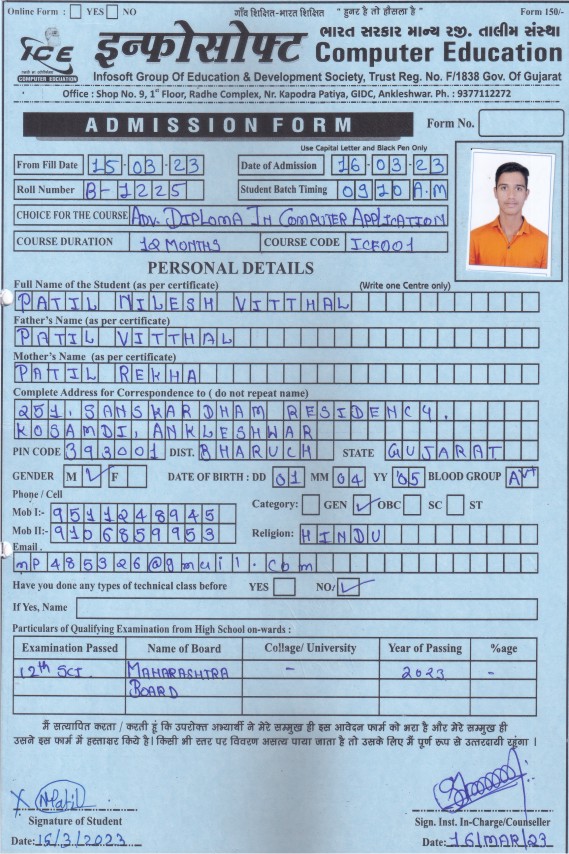 Online Form : YES NO गाँव शिक्षित-भारत शिक्षित " हुनर है तो हौंसला है " Form 150/-
ICE इन्फोसोफ्ट भारत सरकार मान्य रजी. तालीम संस्था
COMPUTER EDUCATION Computer Education
Infosoft Group Of Education & Development Society, Trust Reg. No. F/1838 Gov. Of Gujarat
Office : Shop No. 9, 1st Floor, Radhe Complex, Nr. Kapodra Patiya, GIDC, Ankleshwar. Ph. : 9377112272
ADMISSION FORM Form No.
Use Capital Letter and Black Pen Only
From Fill Date 15-03-23 Date of Admission 16-03-23
Roll Number B-1225 Student Batch Timing 0910A.M
CHOICE FOR THE COURSE ADV. DIPLOMA IN COMPUTER APPLICATION
COURSE DURATION 12 MONTHS COURSE CODE ICE001
PERSONAL DETAILS
Full Name of the Student (as per certificate) (Write one Centre only)
PATIL NILESH VITTHAL
Father's Name (as per certificate)
PATIL VITTHAL
Mother's Name (as per certificate)
PATIL REKHA
Complete Address for Correspondence to ( do not repeat name)
251, SANSKAR DHAM RESIDENCY,
KOSAMDI, ANKLESHWAR
PIN CODE 393001 DIST. BHARUCH STATE GUJARAT
GENDER M ✓ F DATE OF BIRTH : DD 01 MM 04 YY '05 BLOOD GROUP A+
Phone / Cell
Category: GEN ✓ OBC SC ST
Mob I:- 9511248945
Mob II:- 9106859953 Religion: HINDU
Email .
mp485326@gmail.com
Have you done any types of technical class before YES NO/ ✓
If Yes, Name
Particulars of Qualifying Examination from High School on-wards :
Examination Passed Name of Board Collage/ University Year of Passing %age
12th SCI. MAHARASHTRA - 2023 -
BOARD
मैं सत्यापित करता / करती हूं कि उपरोक्त अभ्यार्थी ने मेरे सम्मुख ही इस आवेदन फार्म को भरा है और मेरे सम्मुख ही
उसने इस फार्म में हस्ताक्षर किये है। किसी भी स्तर पर विवरण असत्य पाया जाता है तो उसके लिए मैं पूर्ण रूप से उत्तरदायी रहूंगा ।
X NPatil
Signature of Student Sign. Inst. In-Charge/Counseller
Date: 15/3/2023 Date: 16/MAR/23